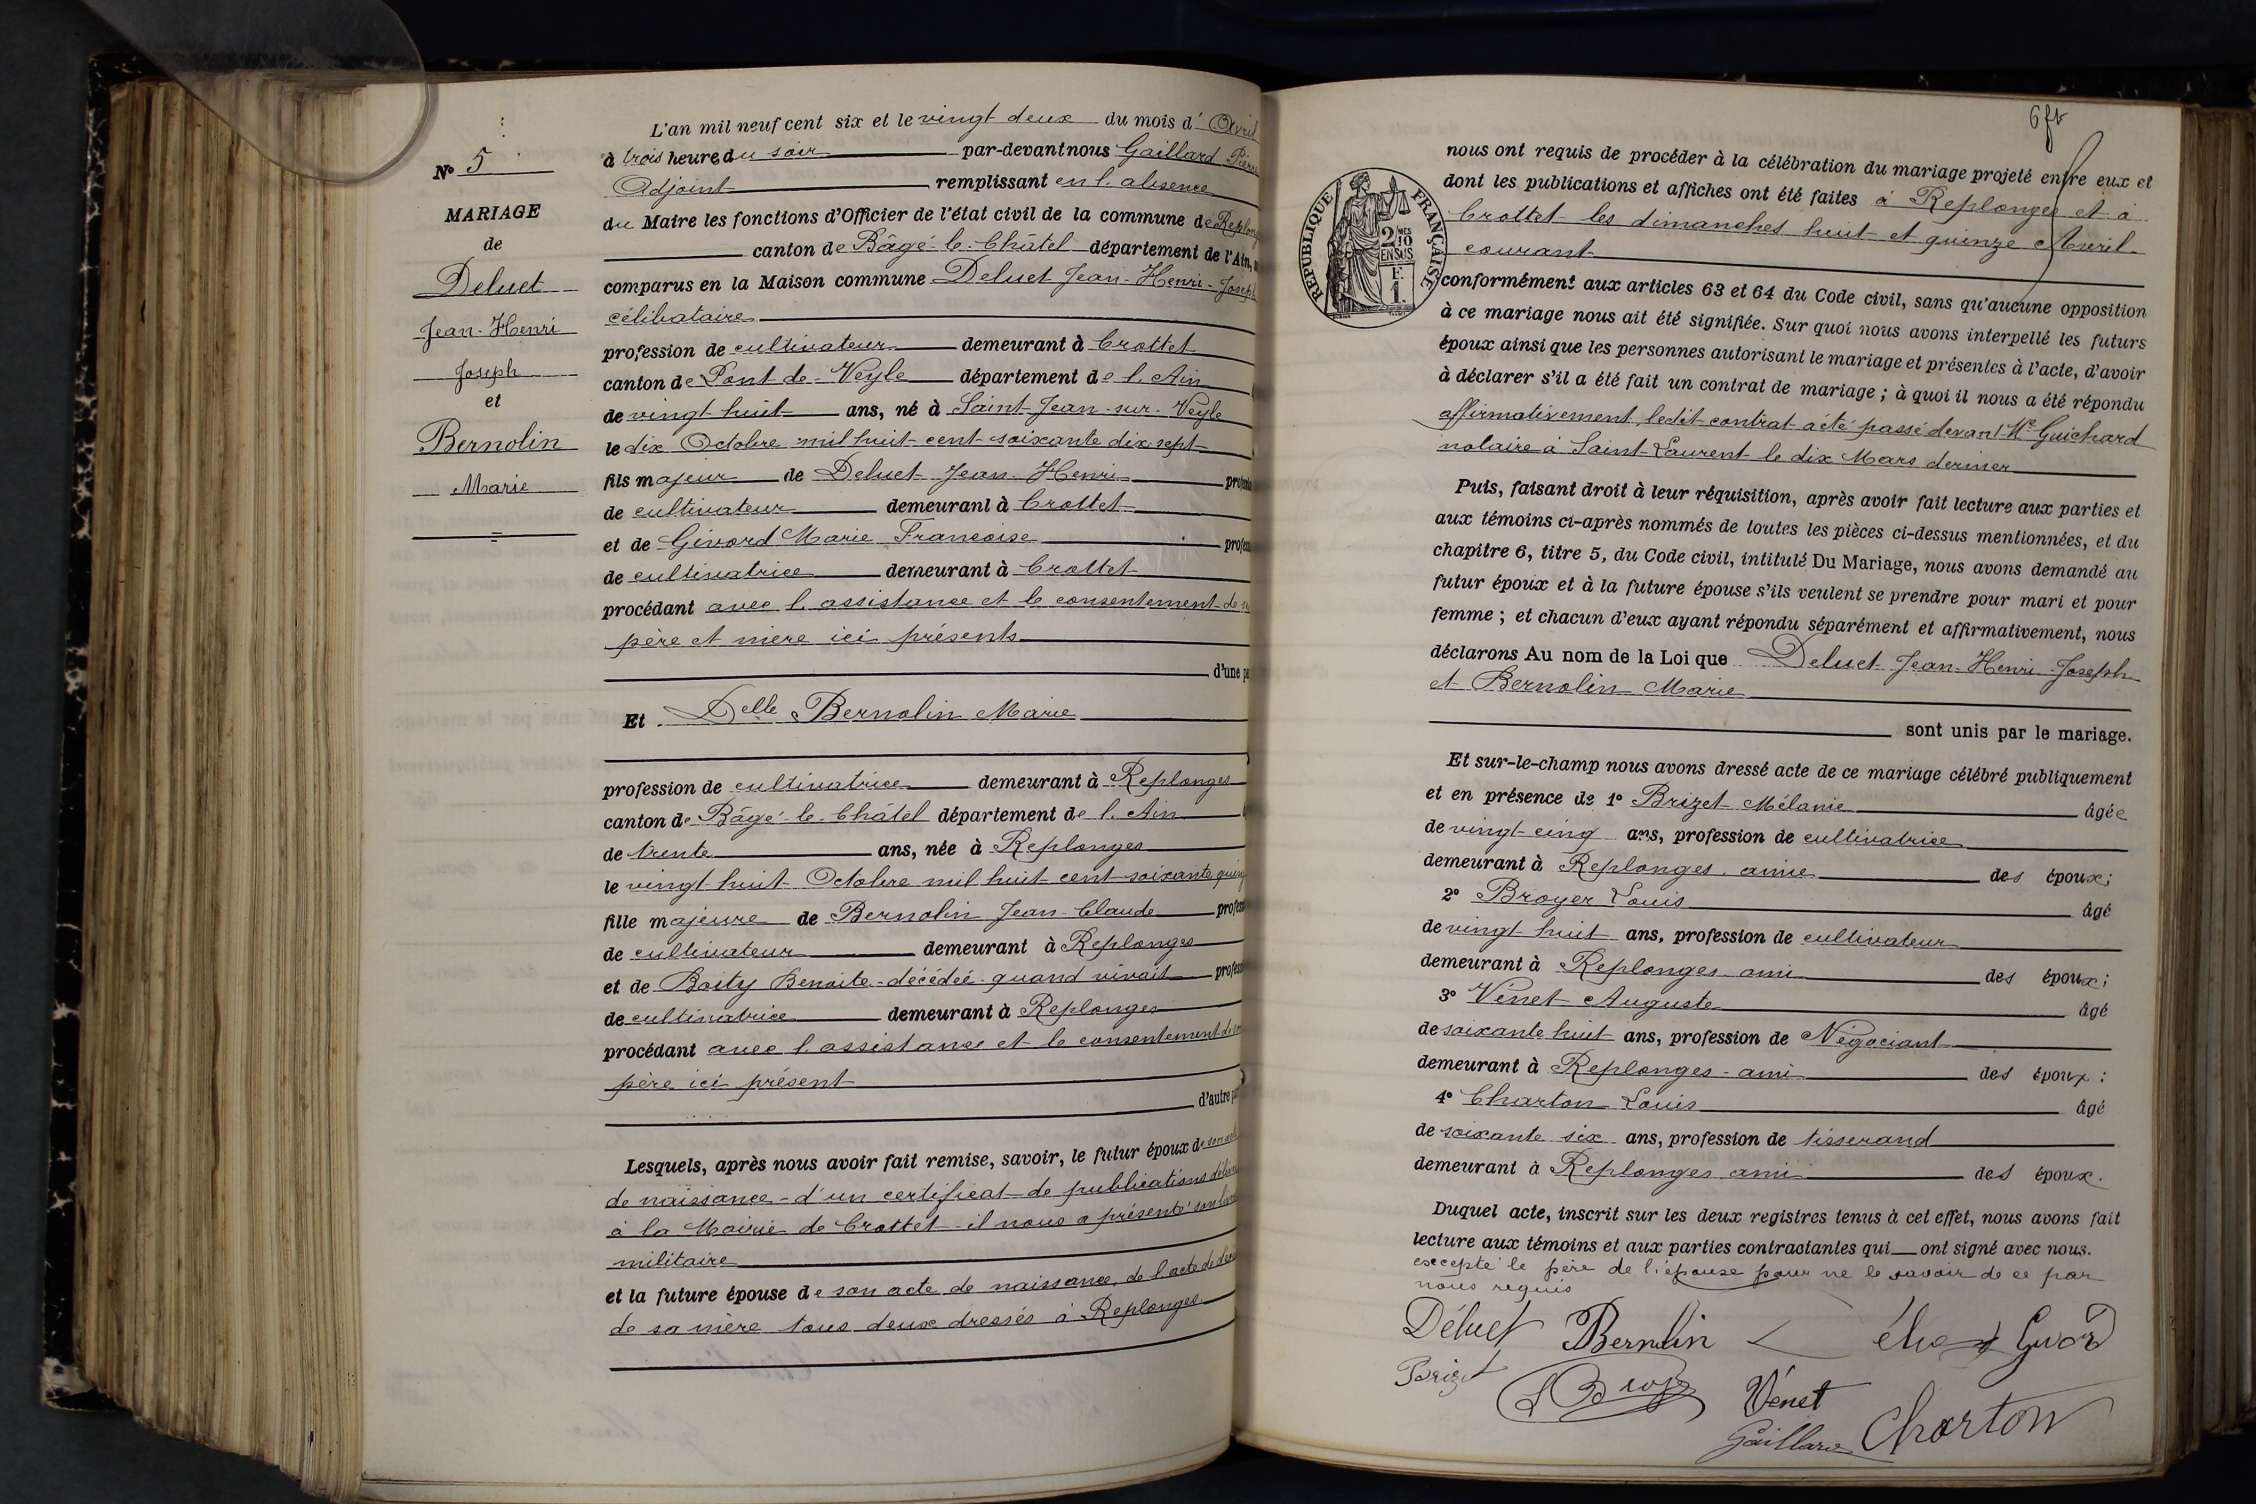 L'an mil neuf cent six et le vingt deux du mois d'Avril
N° 5
à trois heures du soir par-devant nous Gaillard Pierre
Adjoint remplissant en l'absence
MARIAGE
de
Deluet
Jean-Henri
Joseph
et
Bernolin
Marie
du Maire les fonctions d'Officier de l'état civil de la commune de
canton de Bâgé-le-Châtel département de l'Ain,
comparus en la Maison commune Deluet Jean-Henri-Joseph
célibataire
profession de cultivateur demeurant à Crottet
canton de Pont-de-Veyle département de l'Ain
de vingt huit ans, né à Saint-Jean-sur-Veyle
le dix Octobre mil huit cent soixante dix sept
fils majeur de Deluet Jean Henri
de cultivateur demeurant à Crottet
et de Givord Marie Francoise
de cultivatrice demeurant à Crottet
procédant avec l'assistance et le consentement de
père et mère ici présents
d'une
Et Delle Bernolin Marie
profession de cultivatrice demeurant à Replonges
canton de Bâgé-le-Châtel département de l'Ain
de trente ans, née à Replonges
le vingt huit Octobre mil huit cent soixante
fille majeure de Bernolin Jean-Claude
de cultivateur demeurant à Replonges
et de Benoite décédée quand vivait
de cultivatrice demeurant à Replonges
procédant avec l'assistance et le consentement de
père ici présent
d'autre
Lesquels, après nous avoir fait remise, savoir, le futur époux de son
de naissance - d'un certificat de publications
à la Mairie de Crottet - il nous a présenté son
militaire
et la future épouse de son acte de naissance, de l'acte de
de sa mère tous deux dressés à Replonges
6
nous ont requis de procéder à la célébration du mariage projeté entre eux et
dont les publications et affiches ont été faites à Replonges et à
Crottet les dimanches huit et quinze Avril
courant
RÉPUBLIQUE FRANÇAISE
2 MES
10
EN SUS
F.
1.
conformément aux articles 63 et 64 du Code civil, sans qu'aucune opposition
à ce mariage nous ait été signifiée. Sur quoi nous avons interpellé les futurs
époux ainsi que les personnes autorisant le mariage et présentes à l'acte, d'avoir
à déclarer s'il a été fait un contrat de mariage ; à quoi il nous a été répondu
affirmativement ledit contrat a été passé devant Me Guichard
notaire à Saint-Laurent le dix Mars dernier
Puis, faisant droit à leur réquisition, après avoir fait lecture aux parties et
aux témoins ci-après nommés de toutes les pièces ci-dessus mentionnées, et du
chapitre 6, titre 5, du Code civil, intitulé Du Mariage, nous avons demandé au
futur époux et à la future épouse s'ils veulent se prendre pour mari et pour
femme ; et chacun d'eux ayant répondu séparément et affirmativement, nous
déclarons Au nom de la Loi que Deluet Jean-Henri-Joseph
et Bernolin Marie
sont unis par le mariage.
Et sur-le-champ nous avons dressé acte de ce mariage célébré publiquement
et en présence de 1° Brizet Mélanie âgée
de vingt-cinq ans, profession de cultivatrice
demeurant à Replonges amie des époux;
2° Broyer Louis âgé
de vingt huit ans, profession de cultivateur
demeurant à Replonges ami des époux;
3° Vénet Auguste âgé
de soixante huit ans, profession de Négociant
demeurant à Replonges - ami des époux :
4° Charton Louis âgé
de soixante six ans, profession de tisserand
demeurant à Replonges ami des époux.
Duquel acte, inscrit sur les deux registres tenus à cet effet, nous avons fait
lecture aux témoins et aux parties contractantes qui ont signé avec nous.
excepté le père de l'épouse pour ne le savoir de ce par
nous requis
Déluet Bernolin
Brizet Vénet
Gaillard Charton